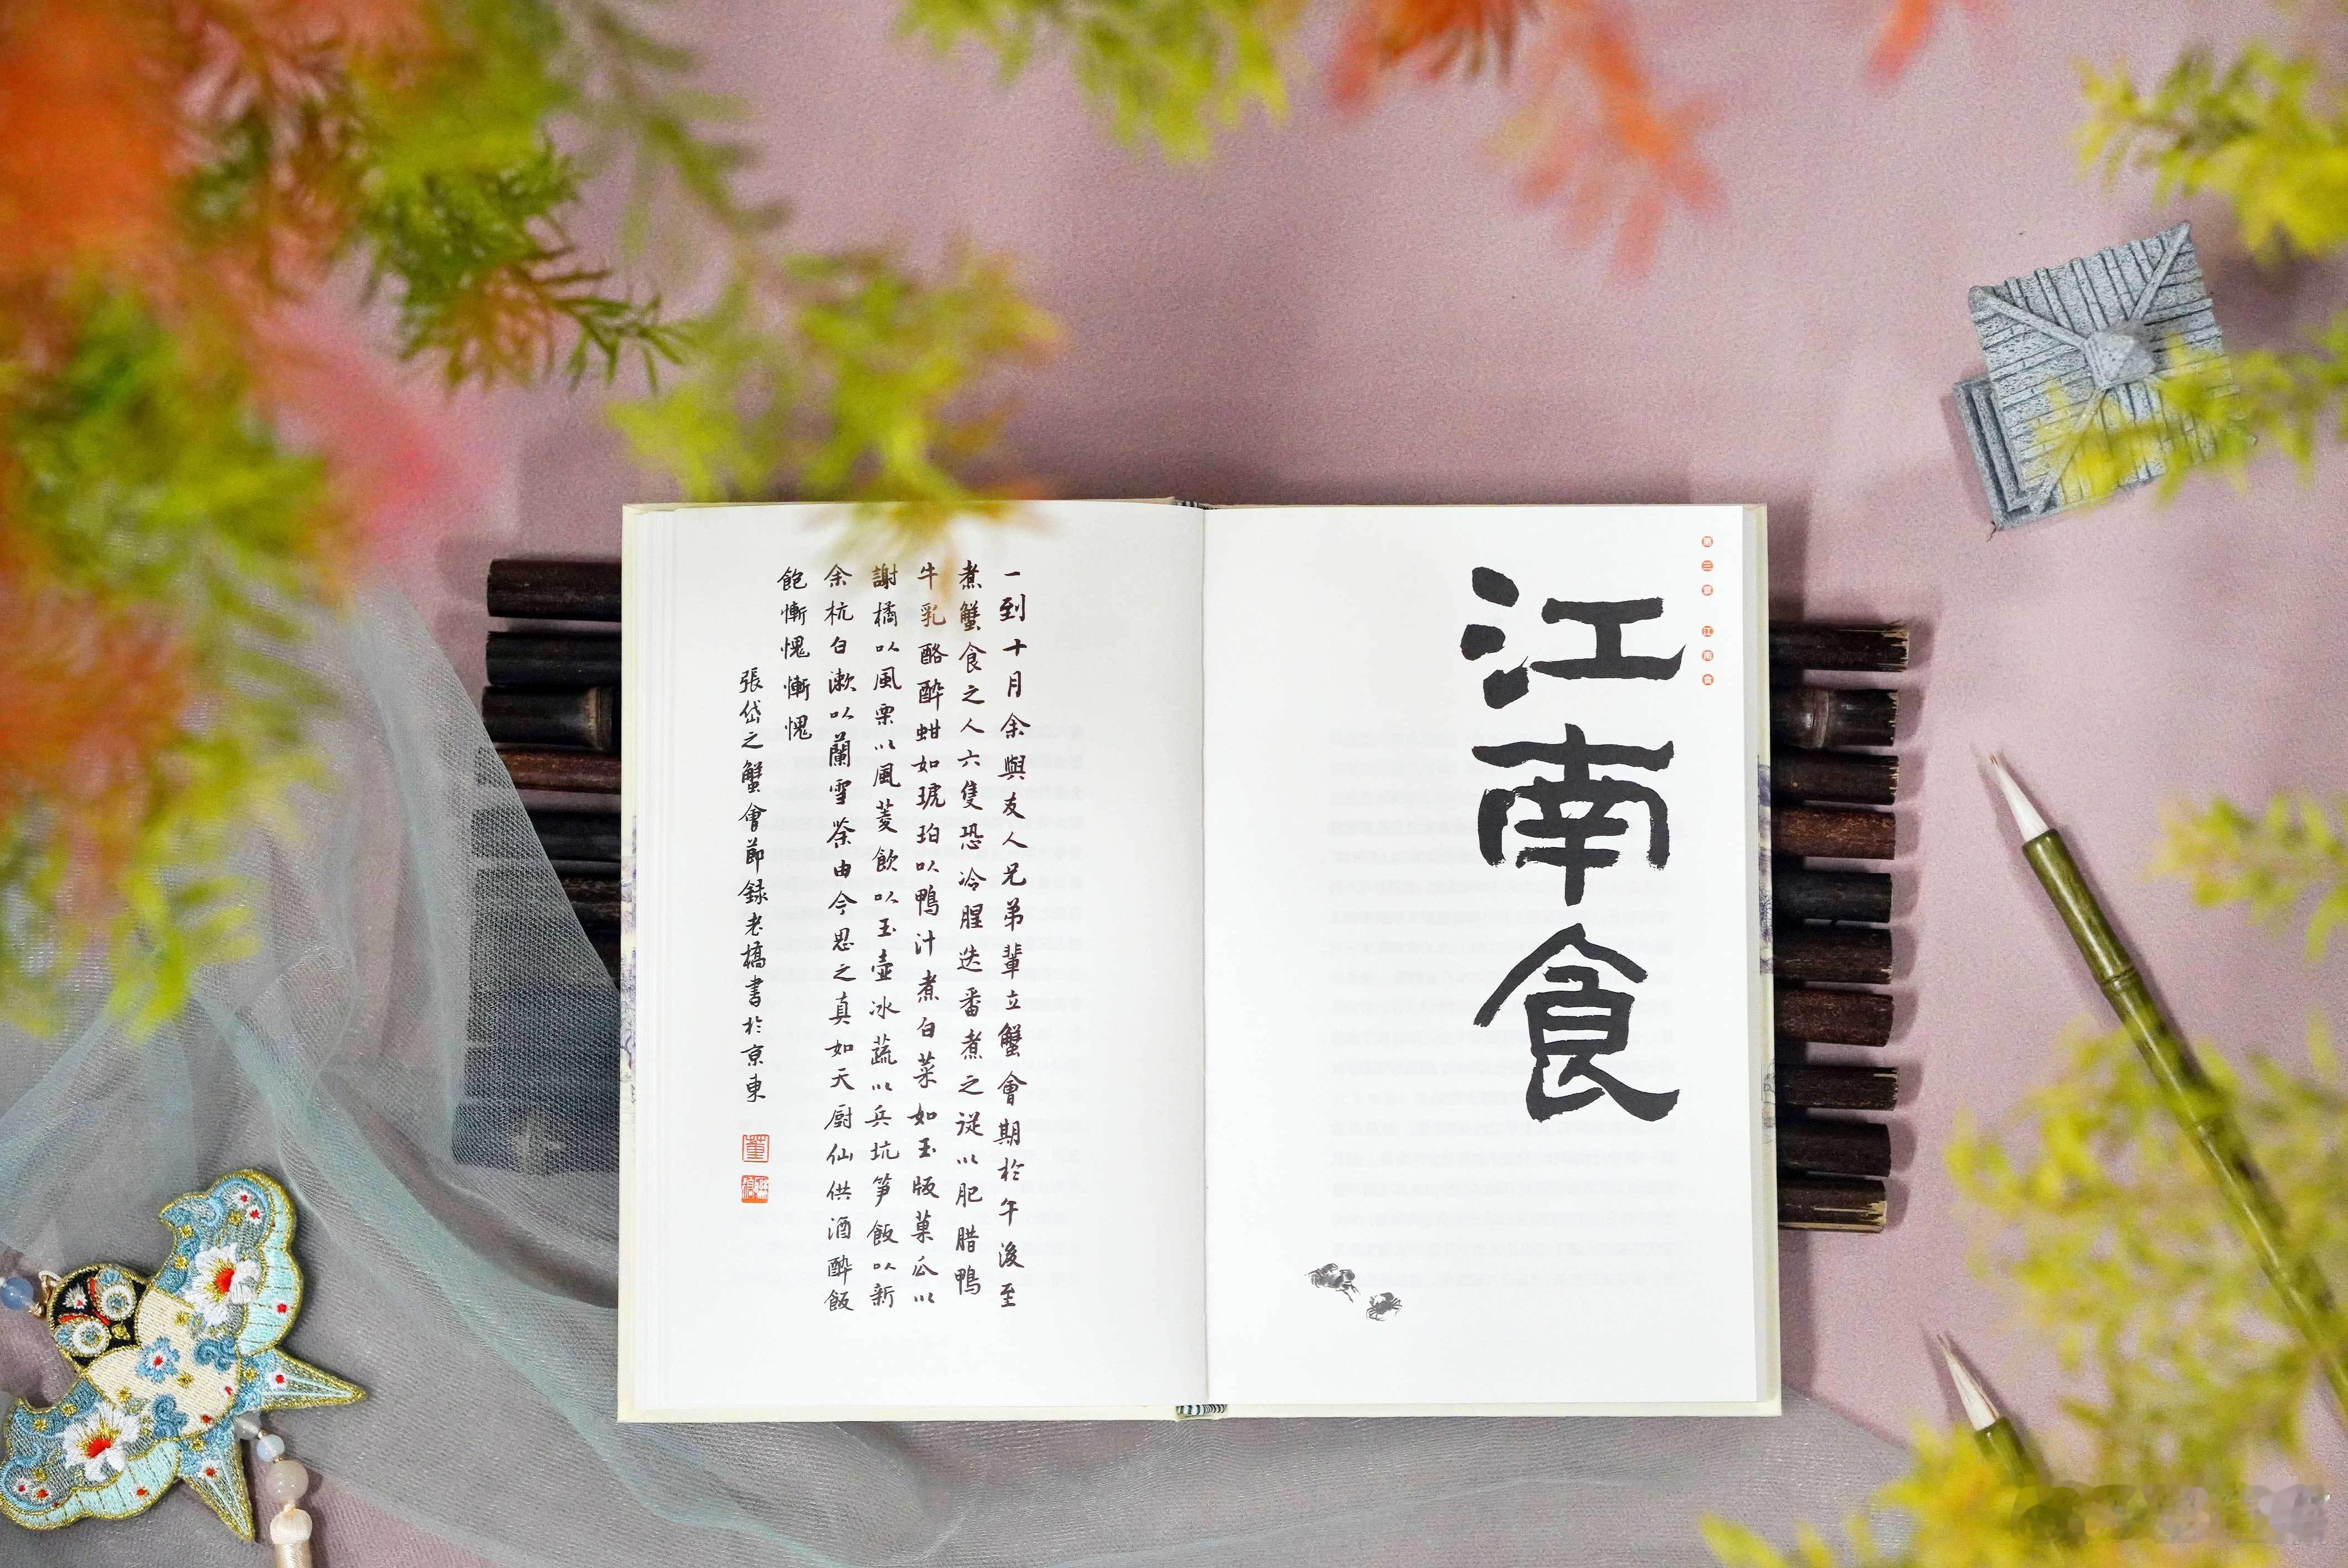 第三章 江南食
江南食
一到十月余與友人兄弟輩立蟹會期於午後至
煮蟹食之人六隻恐冷腥迭番煮之從以肥腊鴨
牛乳酪醉蚶如琥珀以鴨汁煮白菜如玉版菓瓜以
謝橘以風栗以風菱飲以玉壺冰蔬以兵坑笋飯以新
余杭白漱以蘭雪茶由今思之真如天厨仙供酒醉飯
飽慚愧慚愧
張岱之蟹會節録老橋書於京東
董